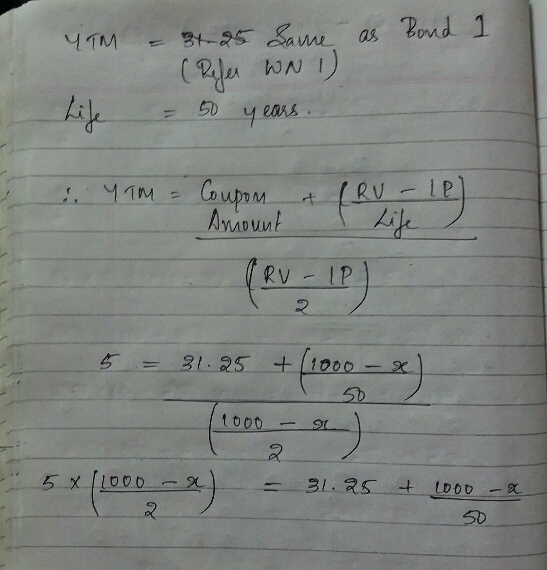 YTM = 31.25 Same as Bond 1
(Refer WN 1)
Life = 50 years.
∴ YTM = Coupon Amount + (RV - IP / Life)
(RV - IP / 2)
5 = 31.25 + (1000 - x / 50)
(1000 - x / 2)
5 x (1000 - x / 2) = 31.25 + 1000 - x / 50